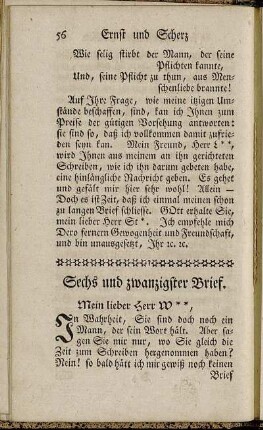 56 Ernst und Scherz
Wie selig stirbt der Mann, der seine
Pflichten kannte,
Und, seine Pflicht zu thun, aus Men-
schenliebe brannte!
Auf Ihre Frage, wie meine itzigen Um-
stände beschaffen, sind, kan ich Ihnen zum
Preise der gütigen Vorsehung antworten:
sie sind so, daß ich vollkommen damit zufrie-
den seyn kan. Mein Freund, Herr L**,
wird Ihnen aus meinem an ihn gerichteten
Schreiben, wie ich ihn darum gebeten habe,
eine hinlängliche Nachricht geben. Es gehet
und gefält mir hier sehr wohl! Allein —
Doch es ist Zeit, daß ich einmal meinen schon
zu langen Brief schliesse. GOtt erhalte Sie,
mein lieber Herr St*. Ich empfehle mich
Dero fernern Gewogenheit und Freundschaft,
und bin unausgesetzt, Ihr ꝛc. ꝛc.
Sechs und zwanzigster Brief.
Mein lieber Herr W**,
In Wahrheit, Sie sind doch noch ein
Mann, der sein Wort hält. Aber sa-
gen Sie mir nur, wo Sie gleich die
Zeit zum Schreiben hergenommen haben?
Nein! so bald hätt ich mir gewiß noch keinen
Brief